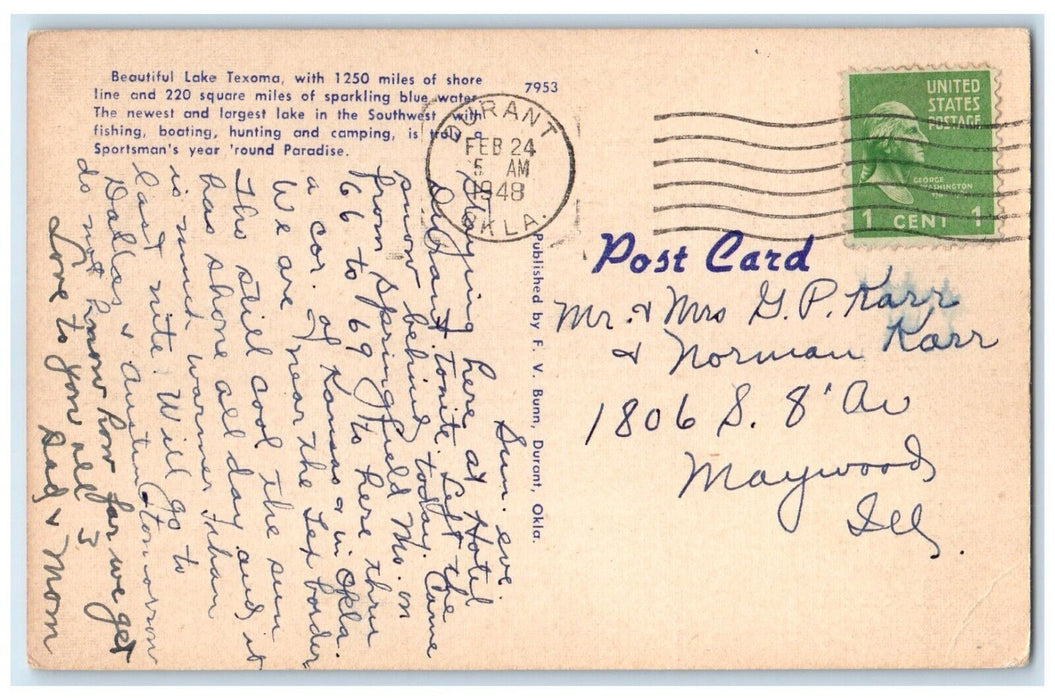 Beautiful Lake Texoma, with 1250 miles of shore
line and 220 square miles of sparkling blue water.
The newest and largest lake in the Southwest with
fishing, boating, hunting and camping, is truly a
Sportsman's year 'round Paradise.
7953
DURANT
FEB 24
5 AM
1948
OKLA.
UNITED
STATES
POSTAGE
GEORGE
WASHINGTON
1 CENT 1
Post Card
Published by F. V. Bunn, Durant, Okla.
Sun. eve.
Staying here at Hotel
Durant tonite. Left the
snow behind today. Came
from Springfield Mo. on
66 to 69 to here thru
a cor. of Kansas & in Okla.
We are near the Tex border
Tho still cool the sun
has shone all day and it
is much warmer than
last nite. Will go to
Dallas & Austin tomorrow
do not know how far we get
Love to you all 3
Dad & Mom
Mr. & Mrs G. P. Karr
& Norman Karr
1806 S. 8' Av
Maywood
Ill.